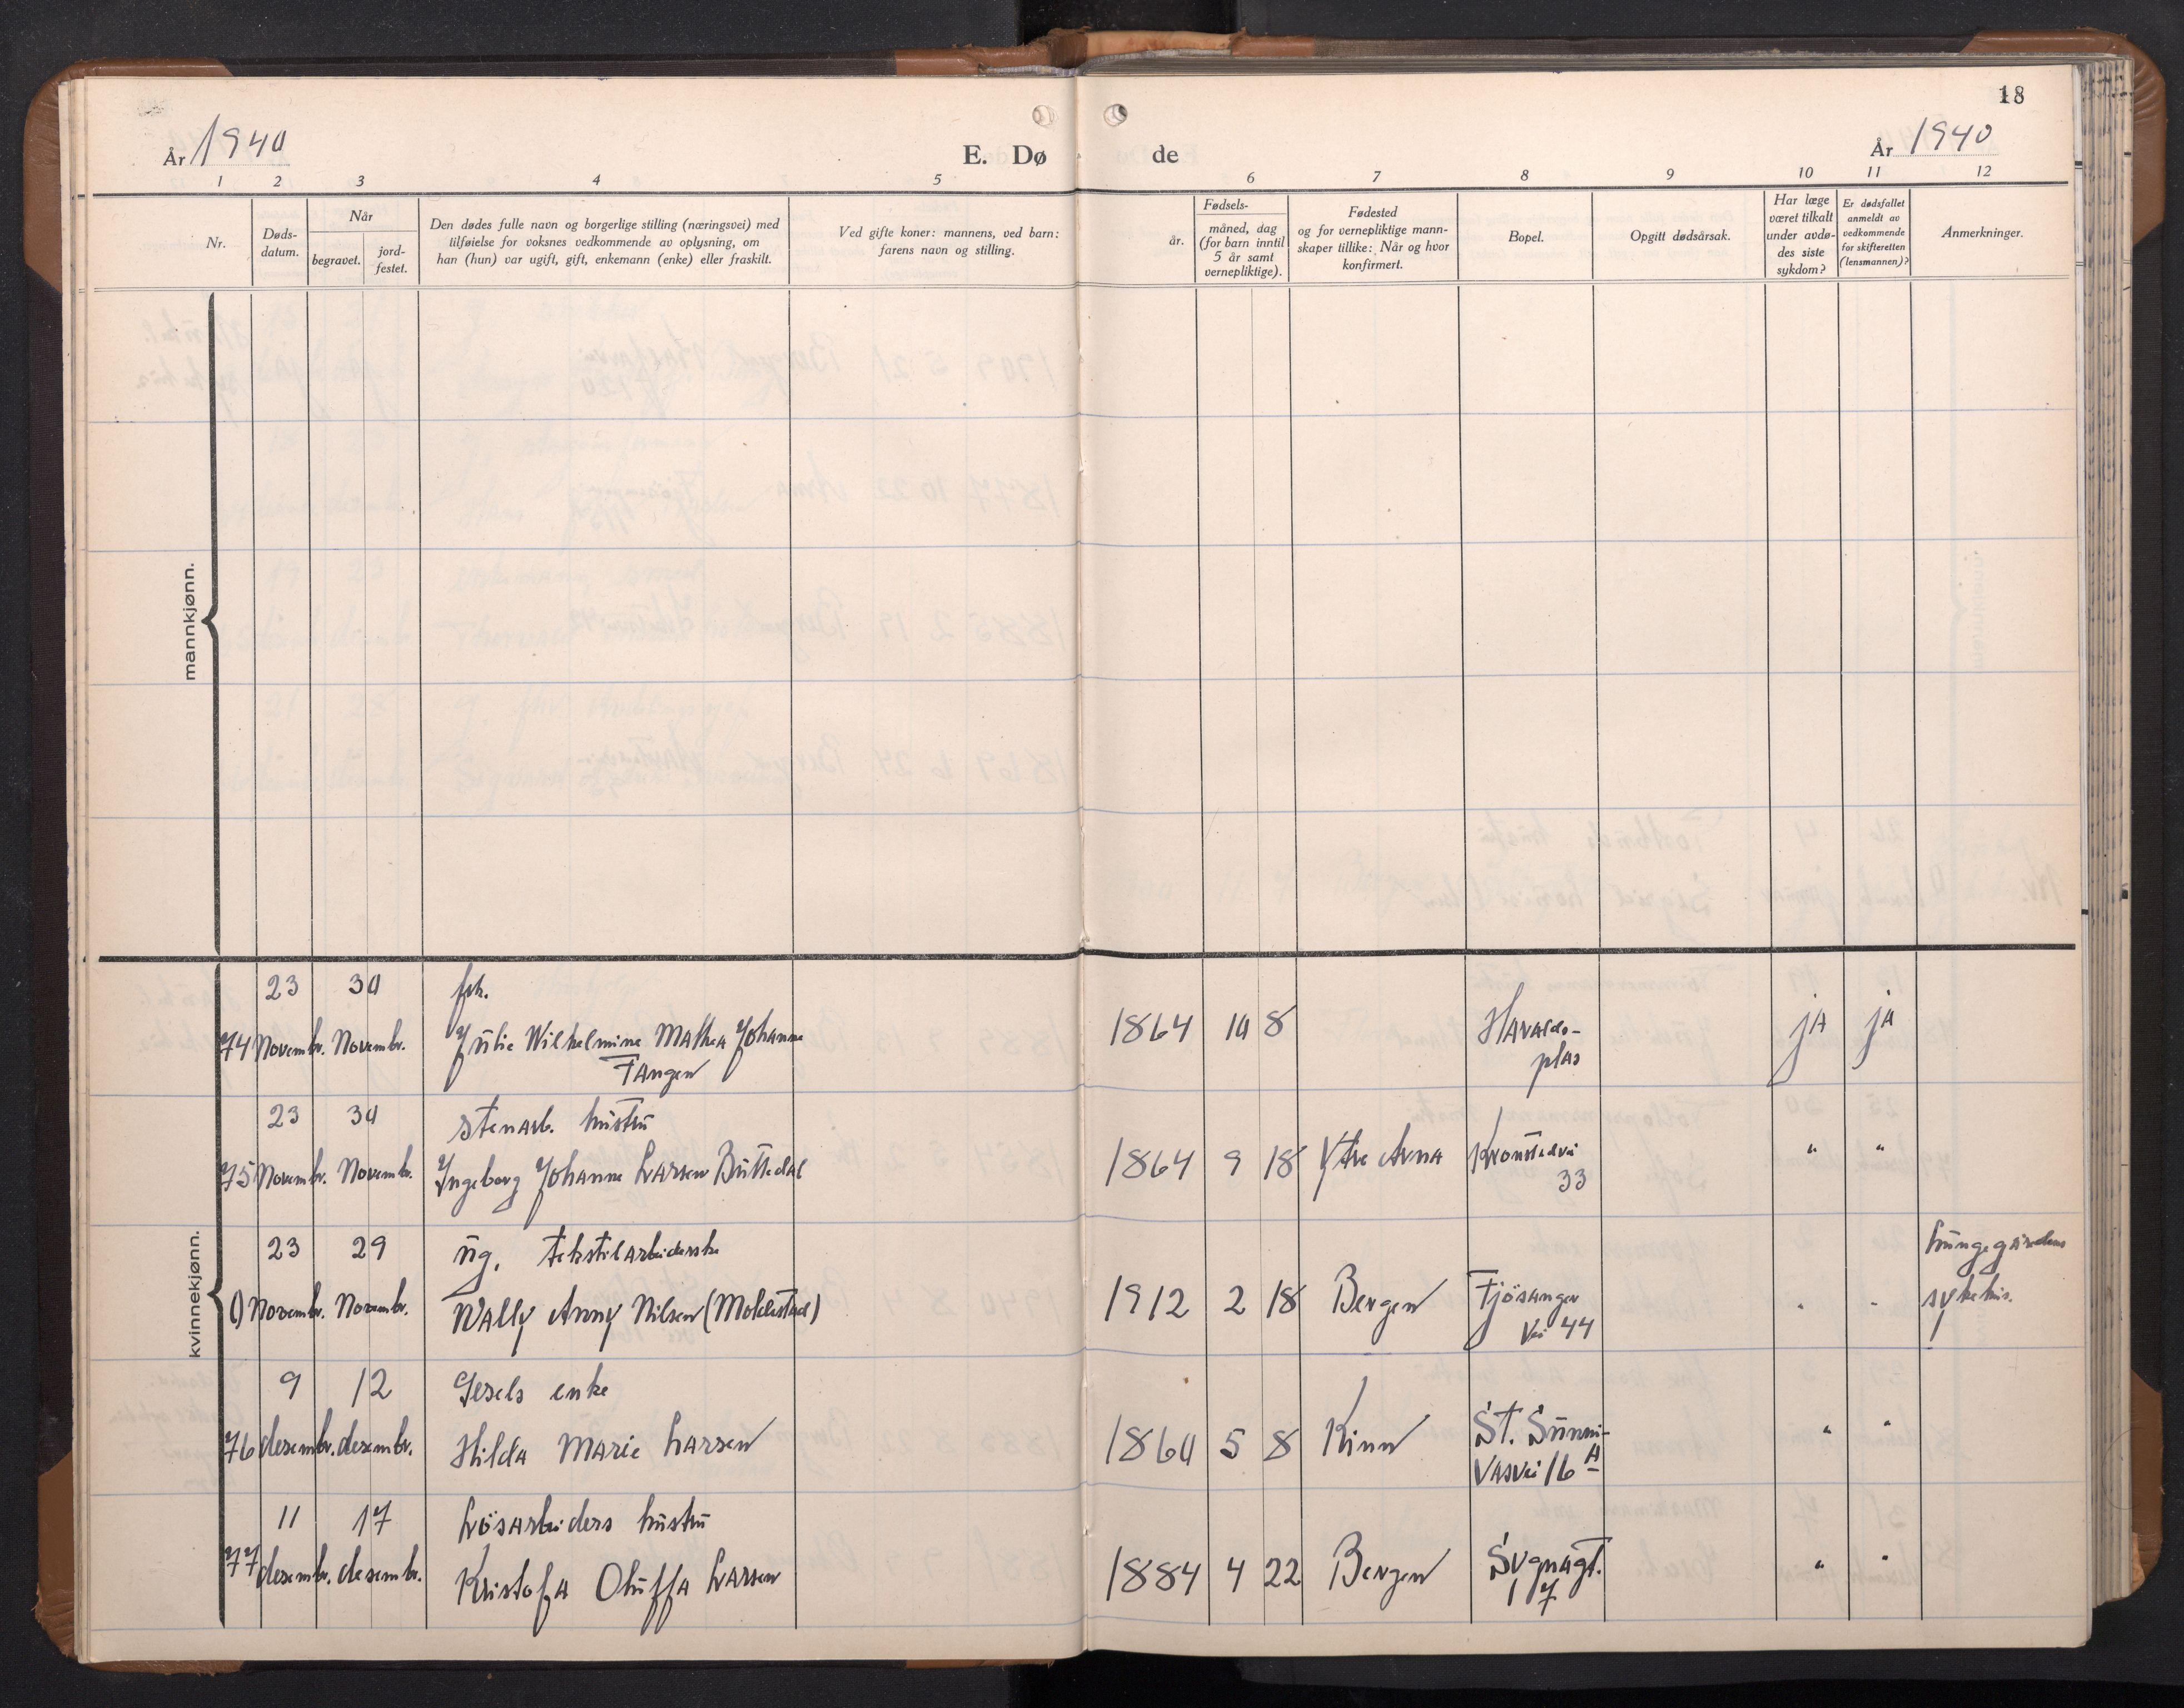 18
År 1940
E. Dø de
År 1940
1 2 3 4 5 6 7 8 9 10 11 12
Nr.
Døds-
datum.
Når
begravet.
jord-
festet.
Den dødes fulle navn og borgerlige stilling (næringsvei) med
tilføielse for voksnes vedkommende av oplysning, om
han (hun) var ugift, gift, enkemann (enke) eller fraskilt.
Ved gifte koner: mannens, ved barn:
farens navn og stilling.
Fødsels-
år.
måned, dag
(for barn inntil
5 år samt
vernepliktige).
Fødested
og for vernepliktige mann-
skaper tillike: Når og hvor
konfirmert.
Bopel.
Opgitt dødsårsak.
Har læge
været tilkalt
under avdø-
des siste
sykdom?
Er dødsfallet
anmeldt av
vedkommende
for skifteretten
(lensmannen)?
Anmerkninger.
mannkjønn.
kvinnekjønn.
23 30 frk.
74 Novembr. Novembr. Julie Wilhelmine Mathea Johanne 1864 10 8 Haralds- ja ja
Fangen plas
23 30 stenarb. hustru
75 Novembr. Novembr. Ingeborg Johanne Larsen Buttedal 1864 9 18 Ytre Arna Kronstadvei " "
33
23 29 ug. tekstilarbeiderske Hungegårdens
0) Novembr. Novembr. Wally Anny Nilsen (Moldestad) 1912 2 18 Bergen Fjösanger " " sykehus.
vei 44
9 12 Gesels enke
76 desembr. desembr. Hilda Marie Larsen 1860 5 8 Kinn St. Sunni- " "
vasvei 16 A
11 17 Lösarbeiders hustru
77 desembr. desembr. Kristofa Oluffa Larsen 1884 4 22 Bergen Sugnagt. " "
17